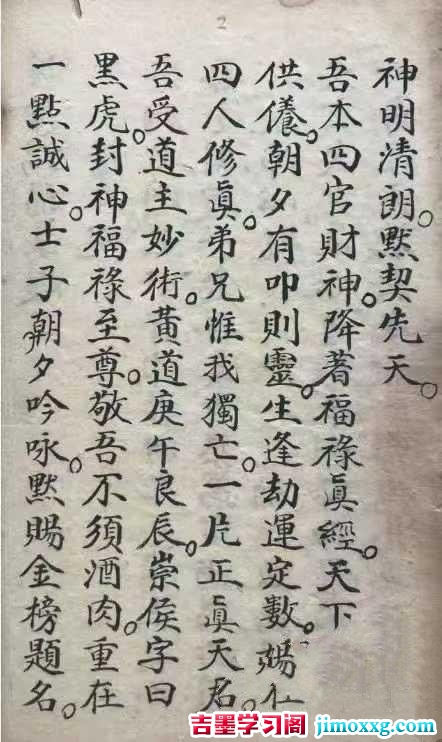 2
神明清朗。默契先天。
吾本四官財神。降著福祿眞經。天下
供儀。朝夕有叩則靈。生逢劫運定數。
四人修眞。弟兄惟我獨亡。一片正眞天
吾受道主妙術。黃道庚午良辰。崇侯字曰
黑虎。封神福祿至尊。敬吾不須酒肉。重在
一點誠心。士子朝夕吟咏。默賜金榜題名。
吉墨学习阁 jimoxxg.com